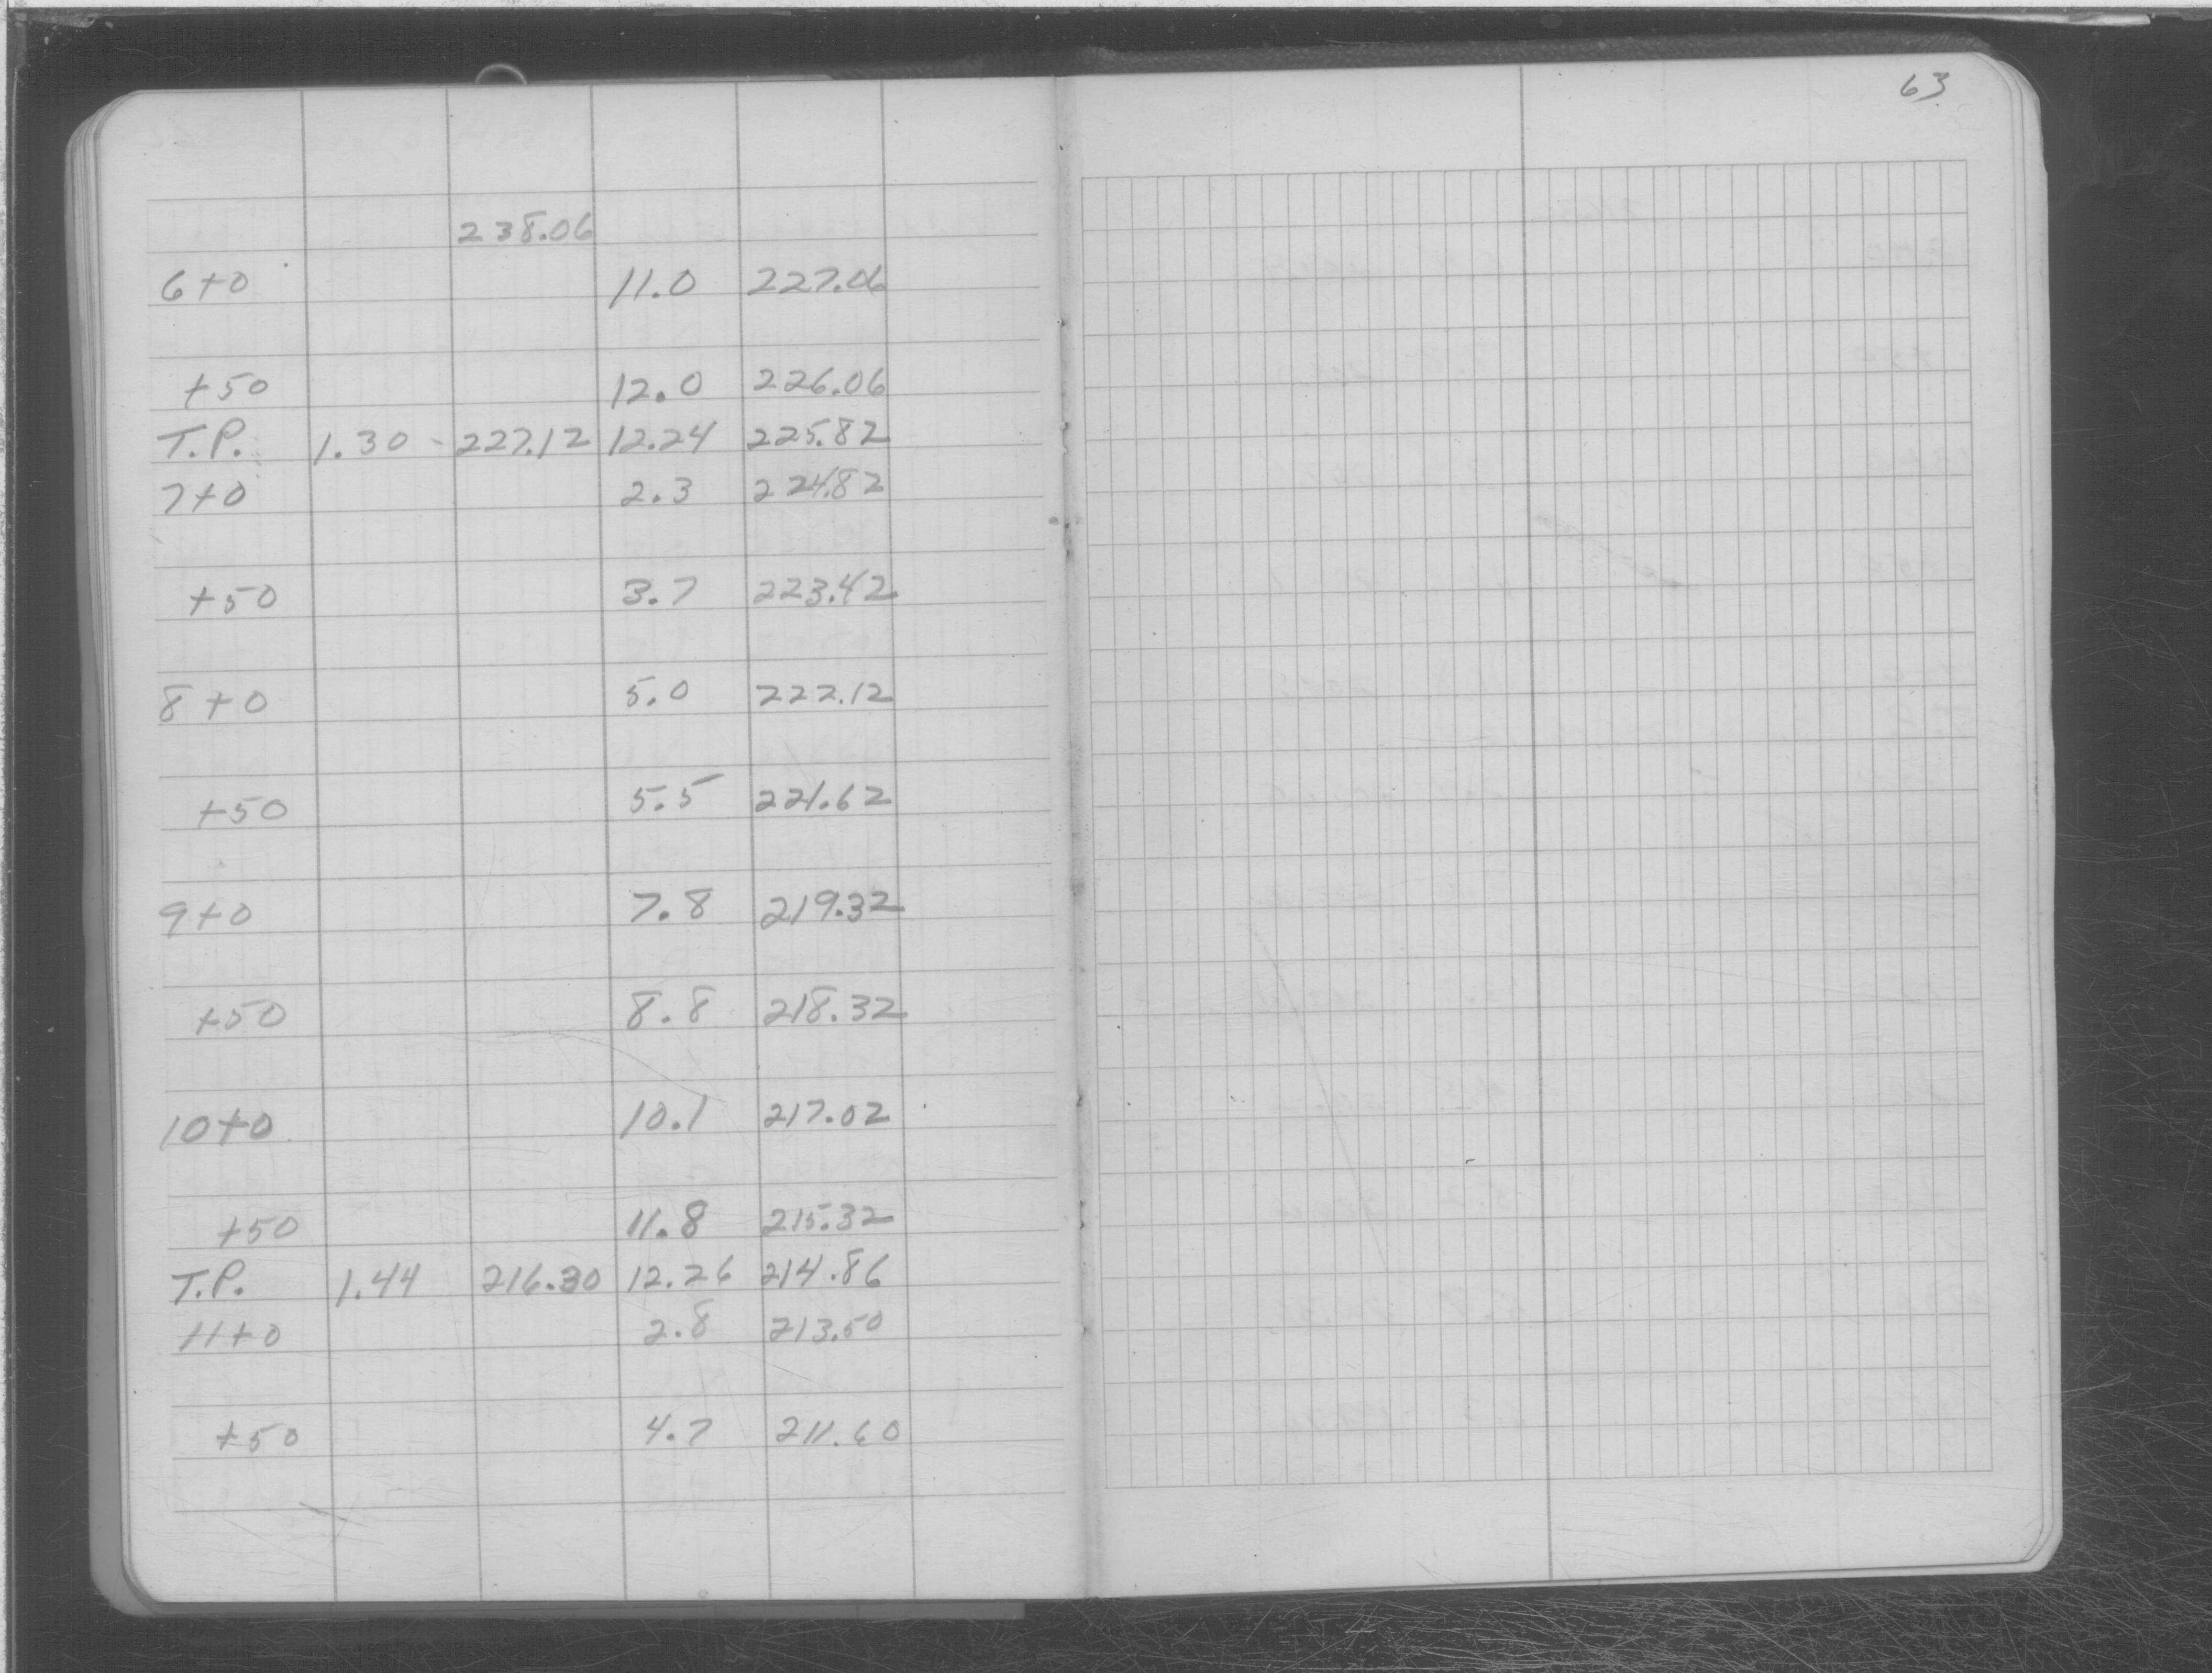 63
238.06
6+0 11.0 227.06
+50 12.0 226.06
T.P. 1.30 - 227.12 12.24 225.82
7+0 2.3 224.82
+50 3.7 223.42
8+0 5.0 222.12
+50 5.5 221.62
9+0 7.8 219.32
+50 8.8 218.32
10+0 10.1 217.02
+50 11.8 215.32
T.P. 1.44 216.30 12.26 214.86
11+0 2.8 213.50
+50 4.7 211.60